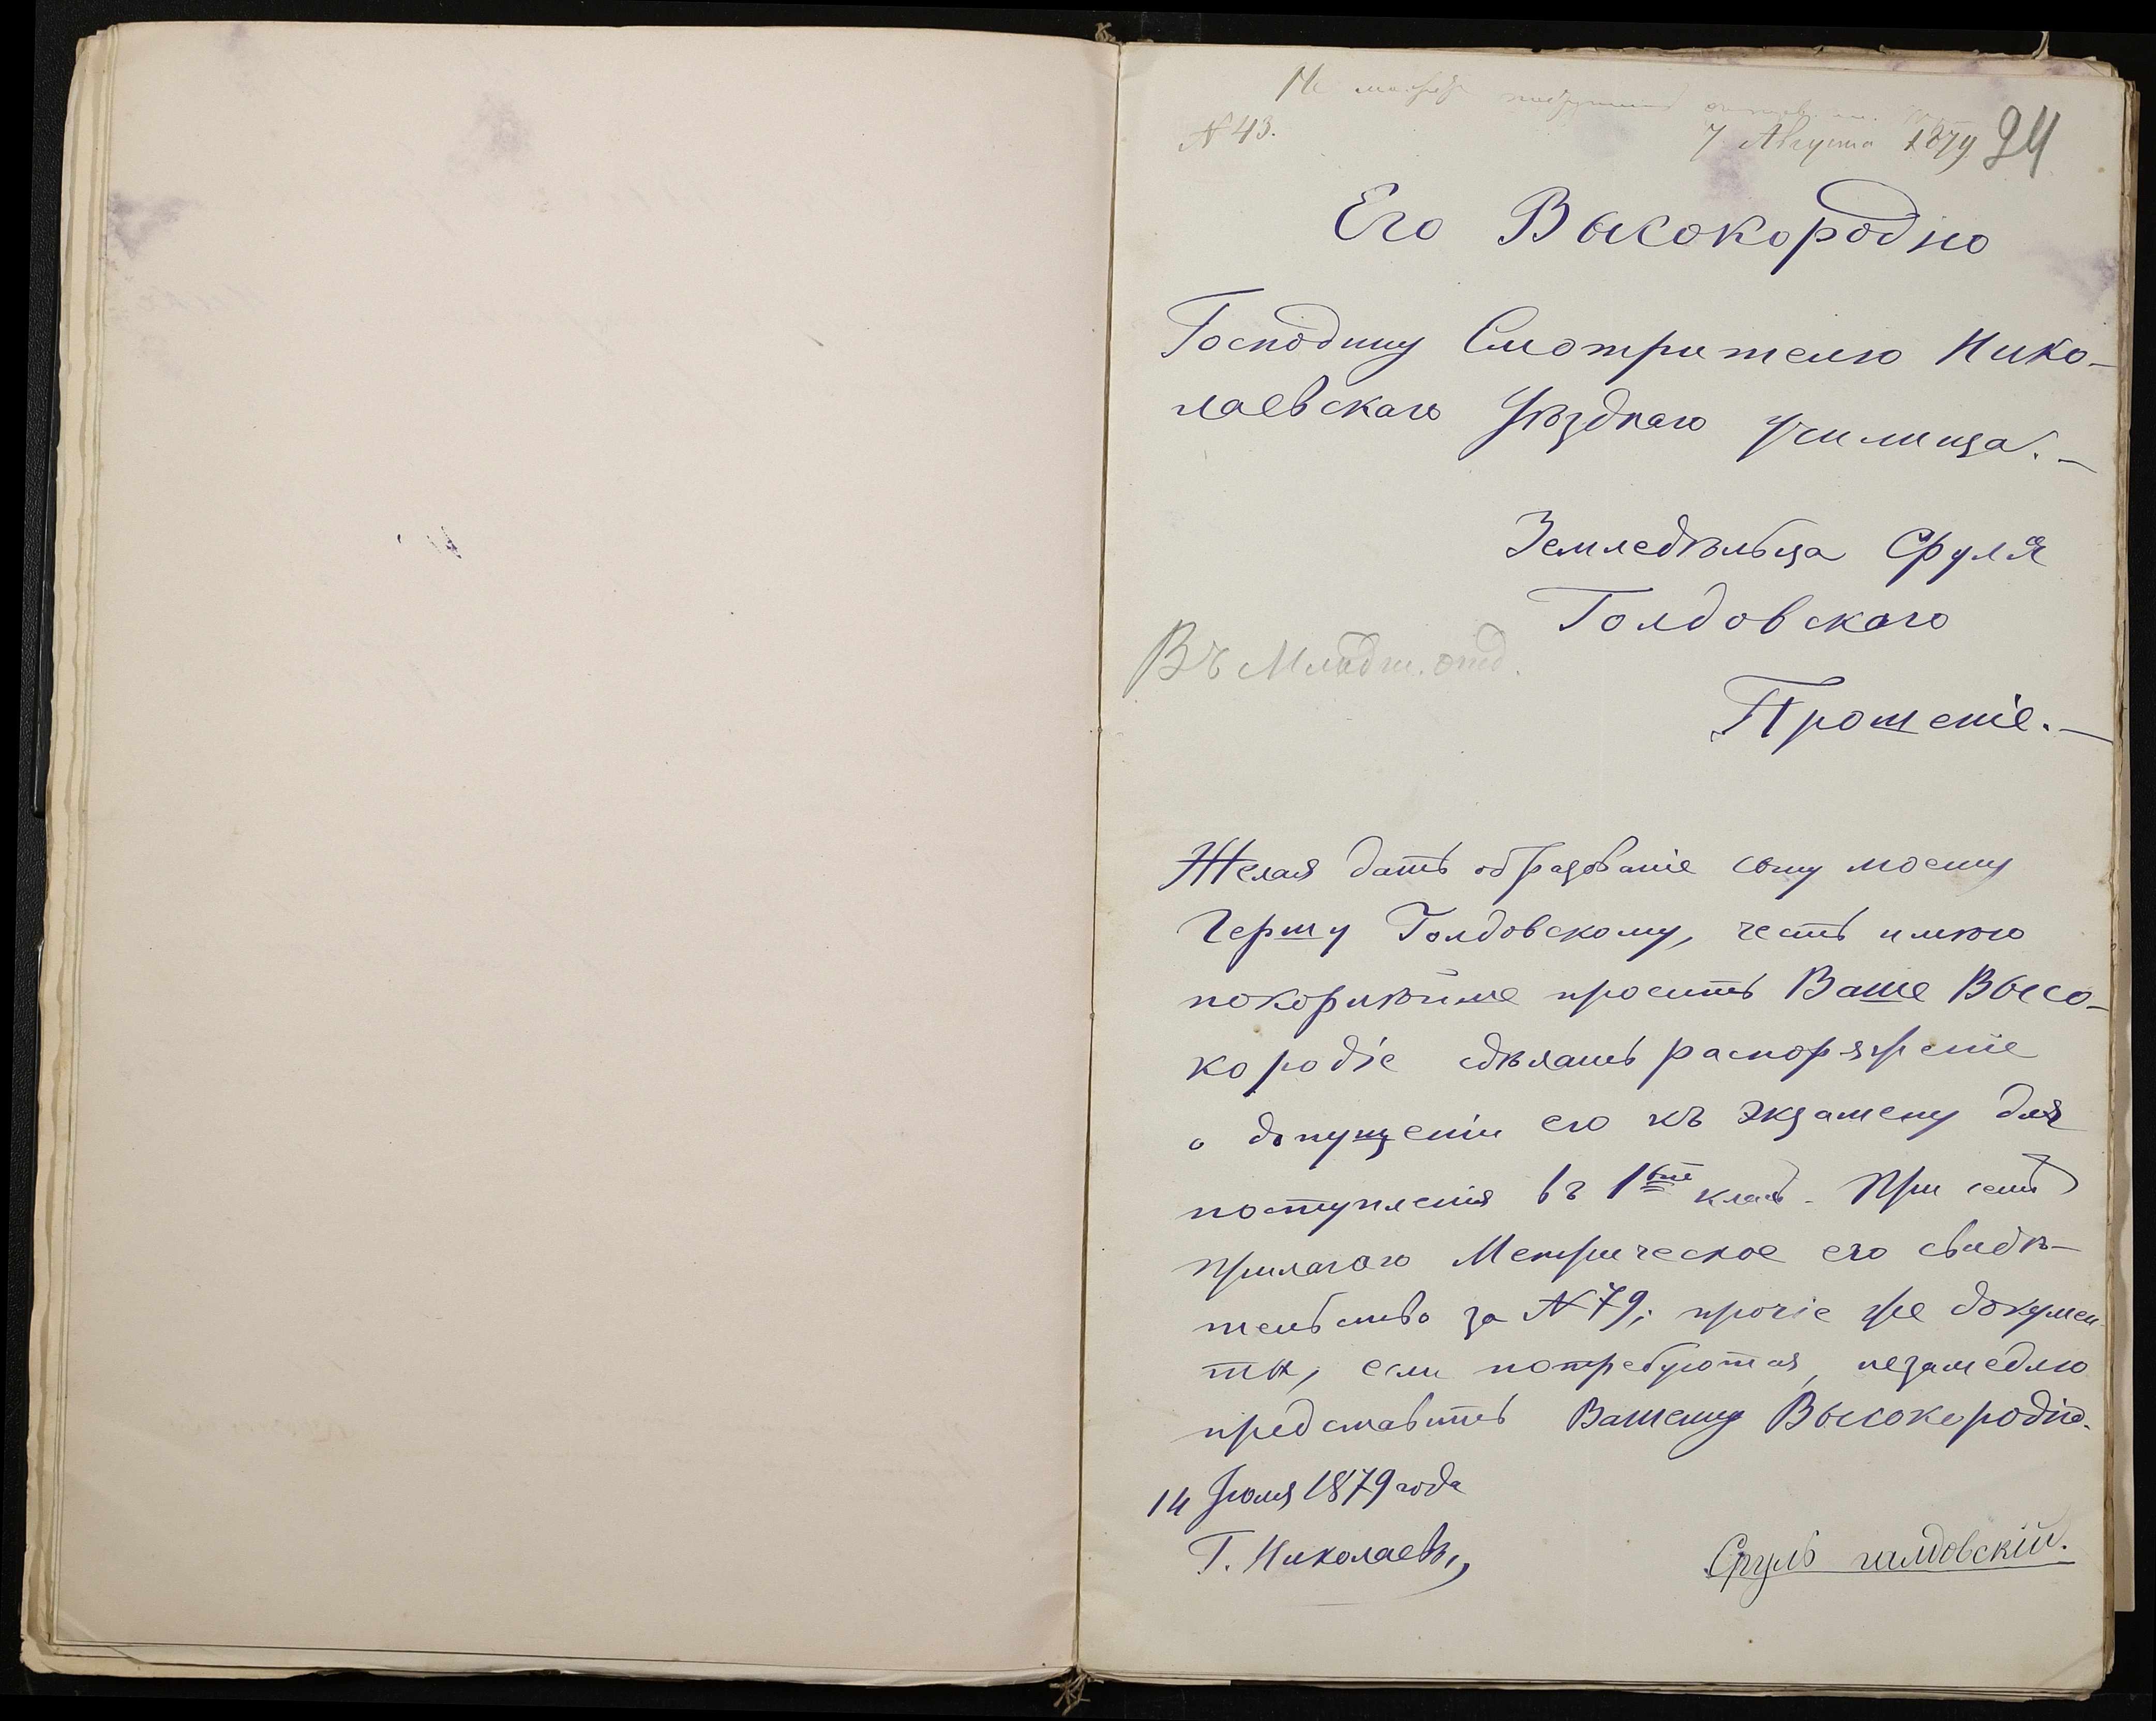 Не
№ 43.
7 Августа 1879 24
Его Высокородію
Господину Смотрителю Нико-
лаевскаго Уѣзднаго Училища. -
Земледѣльца Сруля
Голдовскаго
Въ Младш. отд.
Прошеніе. -
Желая дать образованіе сыну моему
Гершу Голдовскому, честь имѣю
покорнѣйше просить Ваше Высо-
кородіе сдѣлать распоряженіе
о допущеніи его къ экзамену для
поступленія въ 1ый класъ. При семъ
прилагаю Метрическое его свидѣ-
тельство за № 79; прочіе же докумен-
ты, если потребуются, незамедлю
представить Вашему Высокородію.
14 Іюля 1879 года
Г. Николаевъ,
Сруль галдовскій.